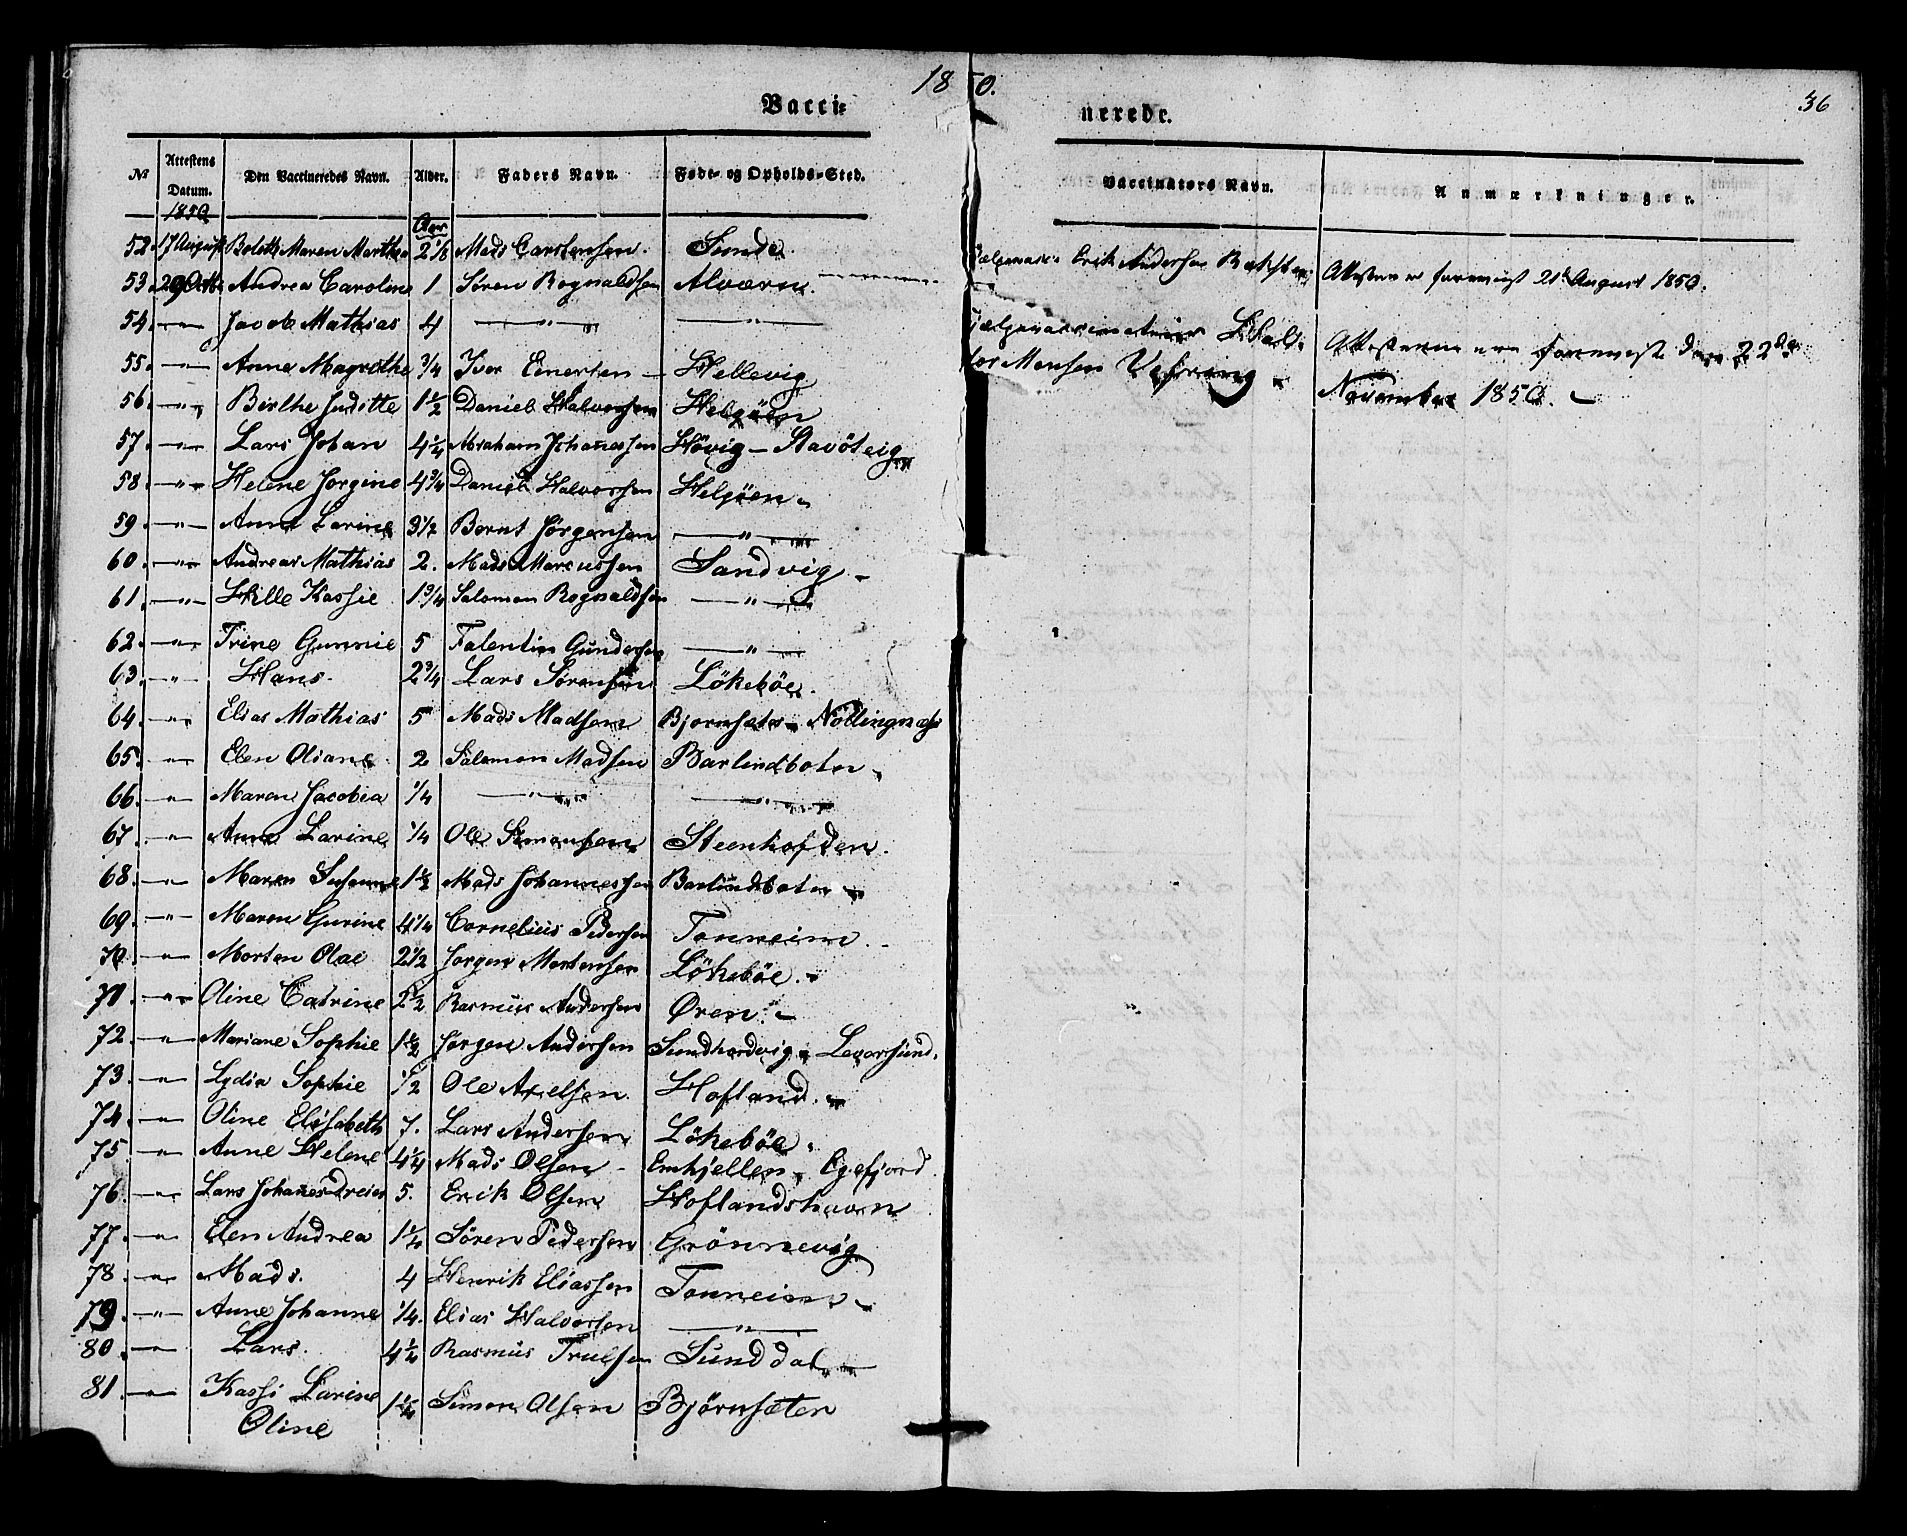 1850.
36
Vacci-
nerede.
No Attestens Datum. Den Vaccineredes Navn. Alder. Faders Navn. Føde- og Opholds-Sted. Vaccinateurs Navn. Anmærkninger.
1850 Aar
52. 17 August Maren Marthea 2 1/8 Mads Carstensen. Sunde. Erik Andersen Attesten er foreviist 21de August 1850.
53. Andrea Caroline 1 Søren Rognaldsen Alværn.
54. " Jacob Mathias 4 " "
55. " Anne Magrethe 3/4 Iver Einertsen Hellevig
56. " Birthe Juditte 1 1/2 Daniel Halvorsen Helgöen
57. " Lars Johan 4 1/4 Abraham Johannessen Hövig - Stavöteig
58. " Helene Jorgine 4 3/4 Daniel Halvorsen Helgöen
59. " Anne Larine 3 1/2 Bernt Jørgensen "
60. " Andreas Mathias 2. Mads Marcussen Sandvig
61. " Hille Kassie 1 3/4 Salomon Rognaldsen "
62. " Trine Gunnie 5 Falentin Gundersen "
63. " Hans. 2 3/4 Lars Sørensen Lökeböe.
64. " Elias Mathias 5 Mads Madsen Bjornsæter Nöllingnæs
65. " Elen Oliane 2 Salomon Madsen Barlindboten
66. " Maren Jacobia 1/4 " "
67. " Anne Larine 1/4 Ole Simonsen Steenhofden.
68. " Maren Susanne 1 1/2 Mads Johannessen Barlindboten
69. " Maren Gurine 4 1/4 Cornelius Pedersen Tonneim
70. " Morten Olai 2 1/2 Jørgen Mortensen Lökeböe.
71. " Oline Catrine 2 1/2 Rasmus Andersen Øren.
72. " Mariane Sophie 1 1/2 Jørgen Andersen Sundhordvig Leversund.
73. " Lydia Sophie 1/2 Ole Axelsen. Hofland.
74. " Oline Elisabeth 7. Lars Andersen Lökeböe.
75. " Anne Helene 4 1/4 Mads Olsen Emhjellen, Egefjord.
76. " Lars Johanes Dreier 5. Erik Olsen Hoflandshavn
77. " Elen Andrea 1 1/4 Sören Pedersen Grönnevig
78. " Mads. 4 Henrik Eliassen Tonneim
79. " Anne Johanne 1/4. Elias Halvorsen "
80. " Lars. 4 1/4 Rasmus Truelsen Sunddal
81. " Kassi Larine 1 1/4 Simon Olsen Björnsæter
Oline
Monsen Vefring
Attesterne ere foreviist den 22de
November 1850.